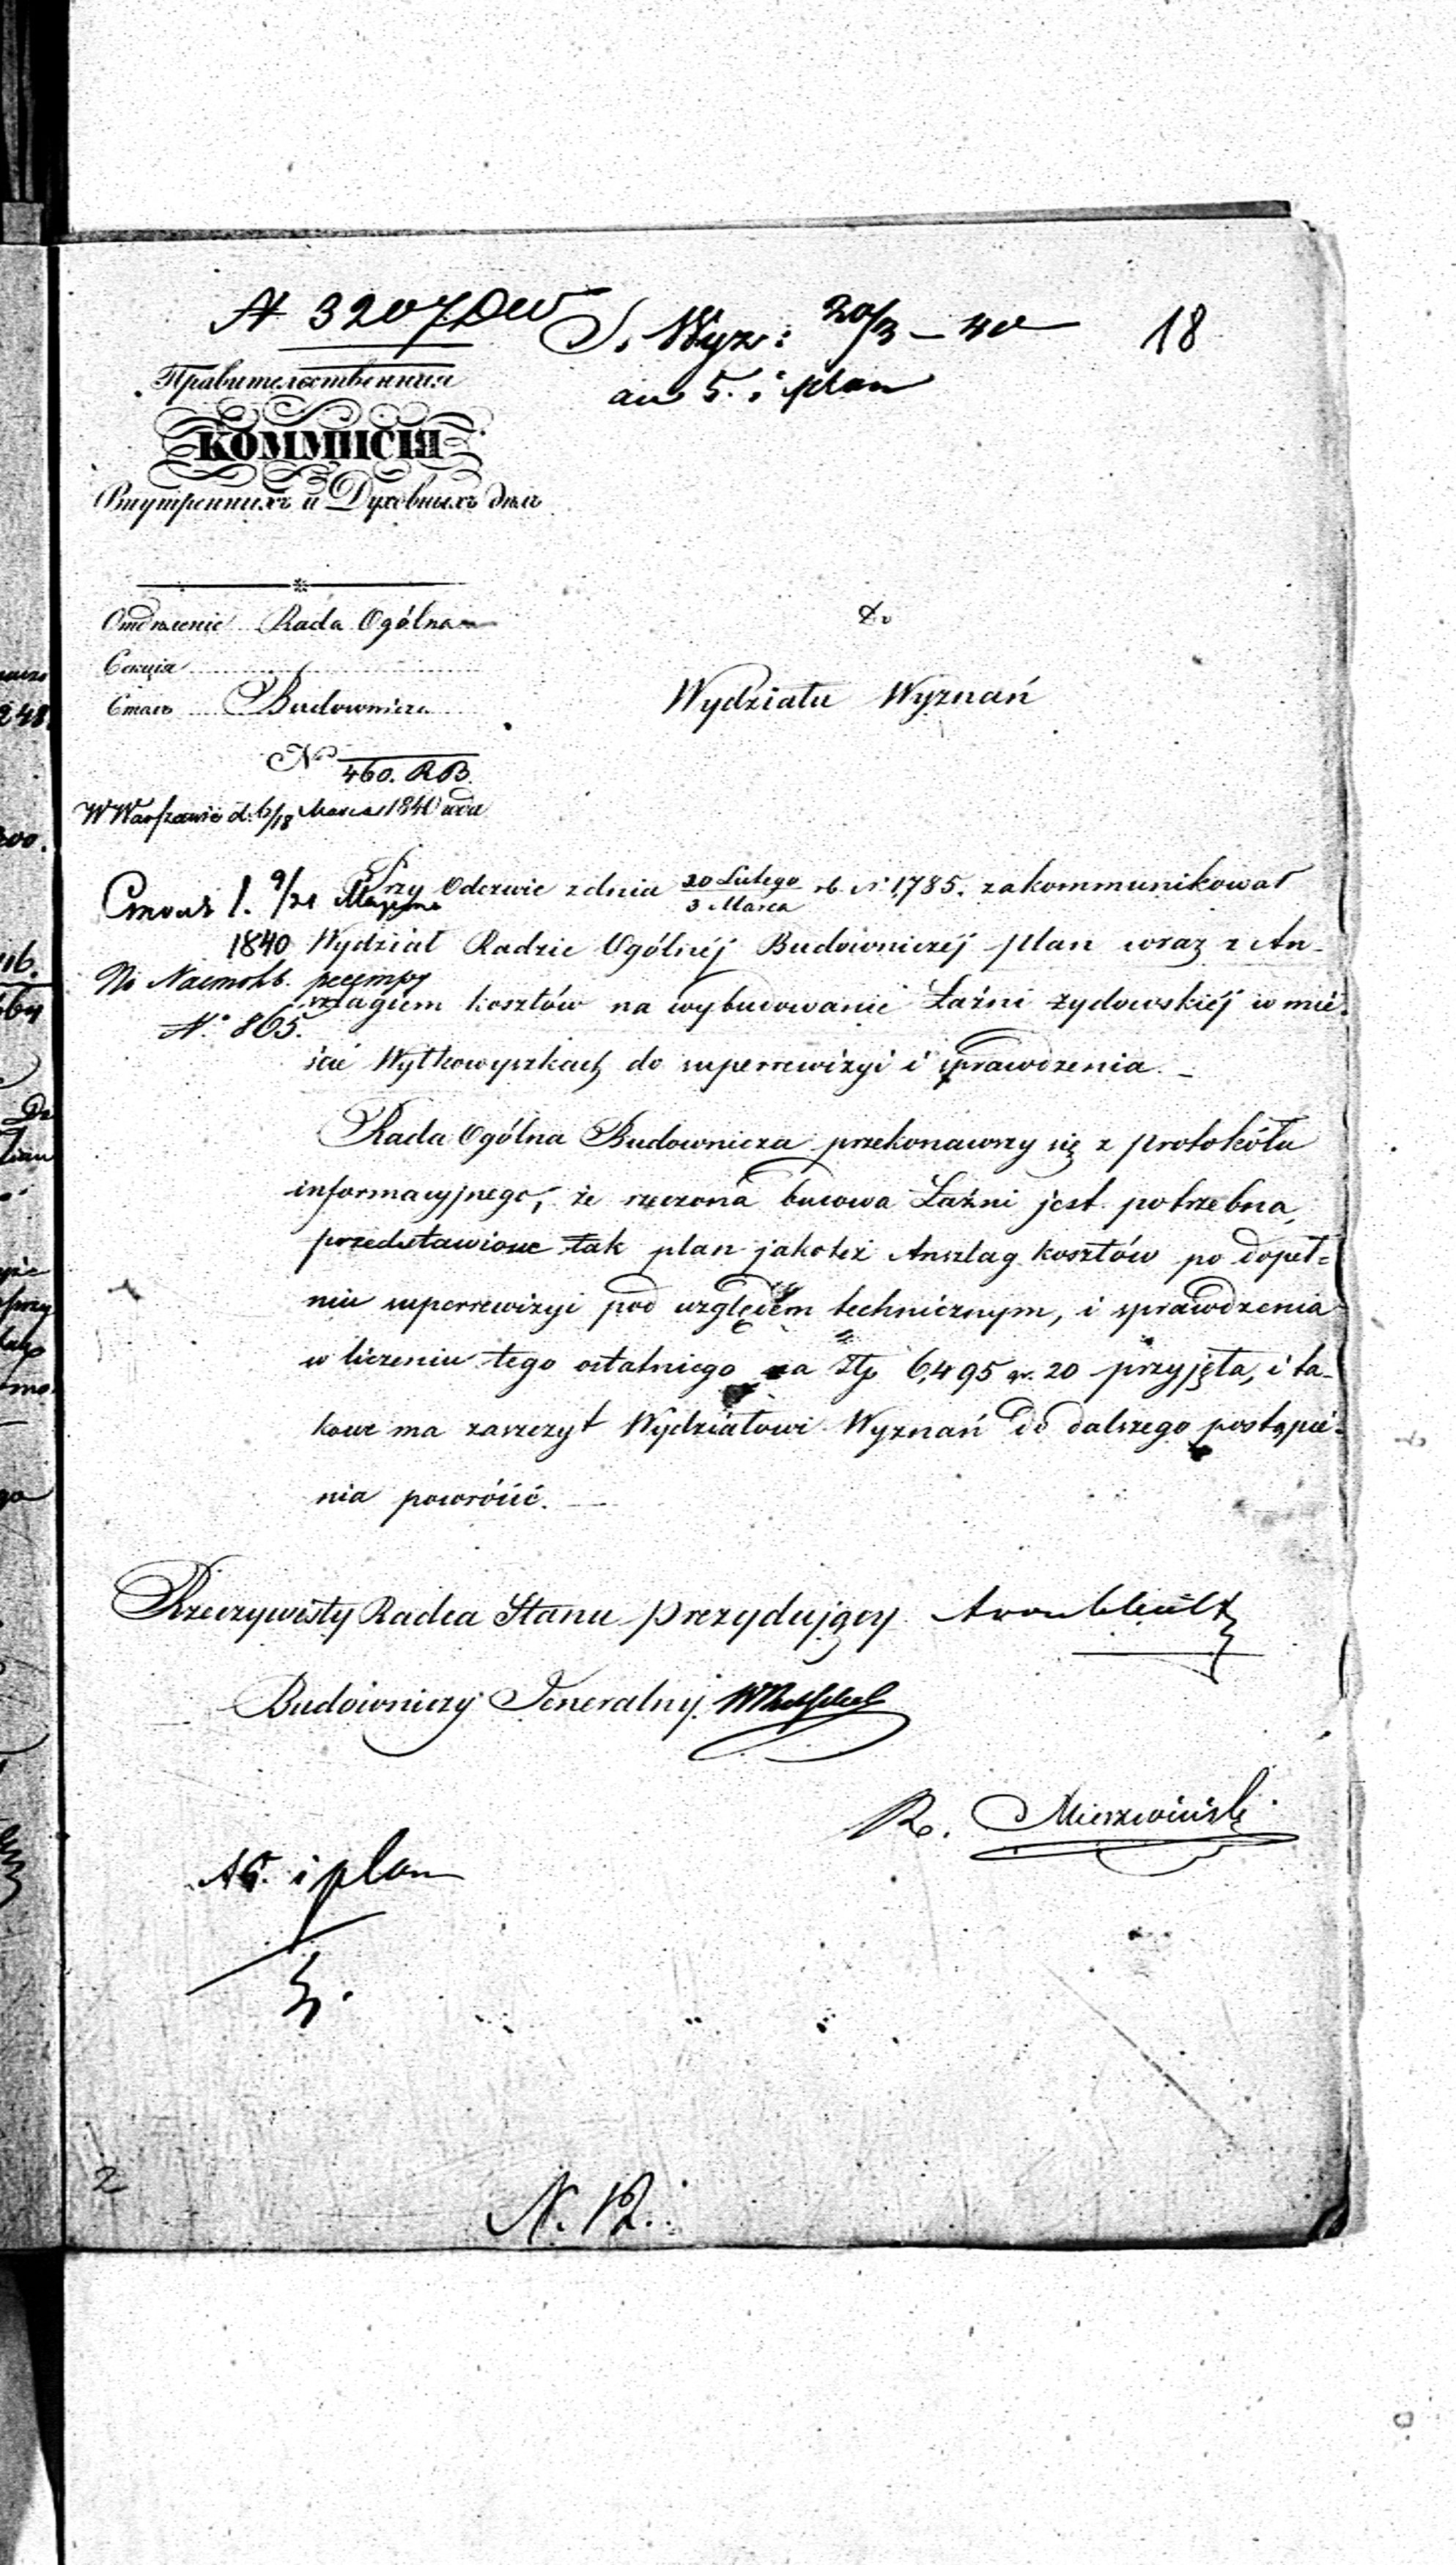 N 3207 DW S. Wyz: 20/3 – 40 18
an 5. i plan
Правительственная
КОММИСІЯ
Внутреннихъ и Духовныхъ дѣлъ
Отдѣленіе Rada Ogólna
Секція
Столъ Budownicza
No 460. RB.
W Warszawie d. 6/18 Marca 1840 roku
Do
Wydziału Wyznań
Столъ 1. 9/21 Марта
1840
По Настол. реестру
N° 865.
Przy Odezwie z dnia 20 Lutego / 3 Marca rb. N. 1,785. zakommunikował
Wydział Radzie Ogólnéj Budowniczéj plan wraz z An-
szlagiem kosztów na wybudowanie Łaźni żydowskiéj w mie-
ście Wyłkowyszkach do superrewizyi i sprawdzenia. –
Rada Ogólna Budownicza przekonawszy się z protokółu
informacyjnego, że rzeczona budowa Łaźni jest potrzebna,
przedstawione tak plan jakoteż Anszlag kosztów po dopeł-
niu superrewizyi pod względem technicznym, i sprawdzenia
w liczeniu tego ostatniego na Złp 6,495 gr. 20 przyjęła, i ta-
kowe ma zaszczyt Wydziałowi Wyznań do dalszego postąpie-
nia powrócić. –
Rzeczywisty Radca Stanu prezydujący
Budowniczy Jeneralny
R.
A 5. i plan
N. 12.
2